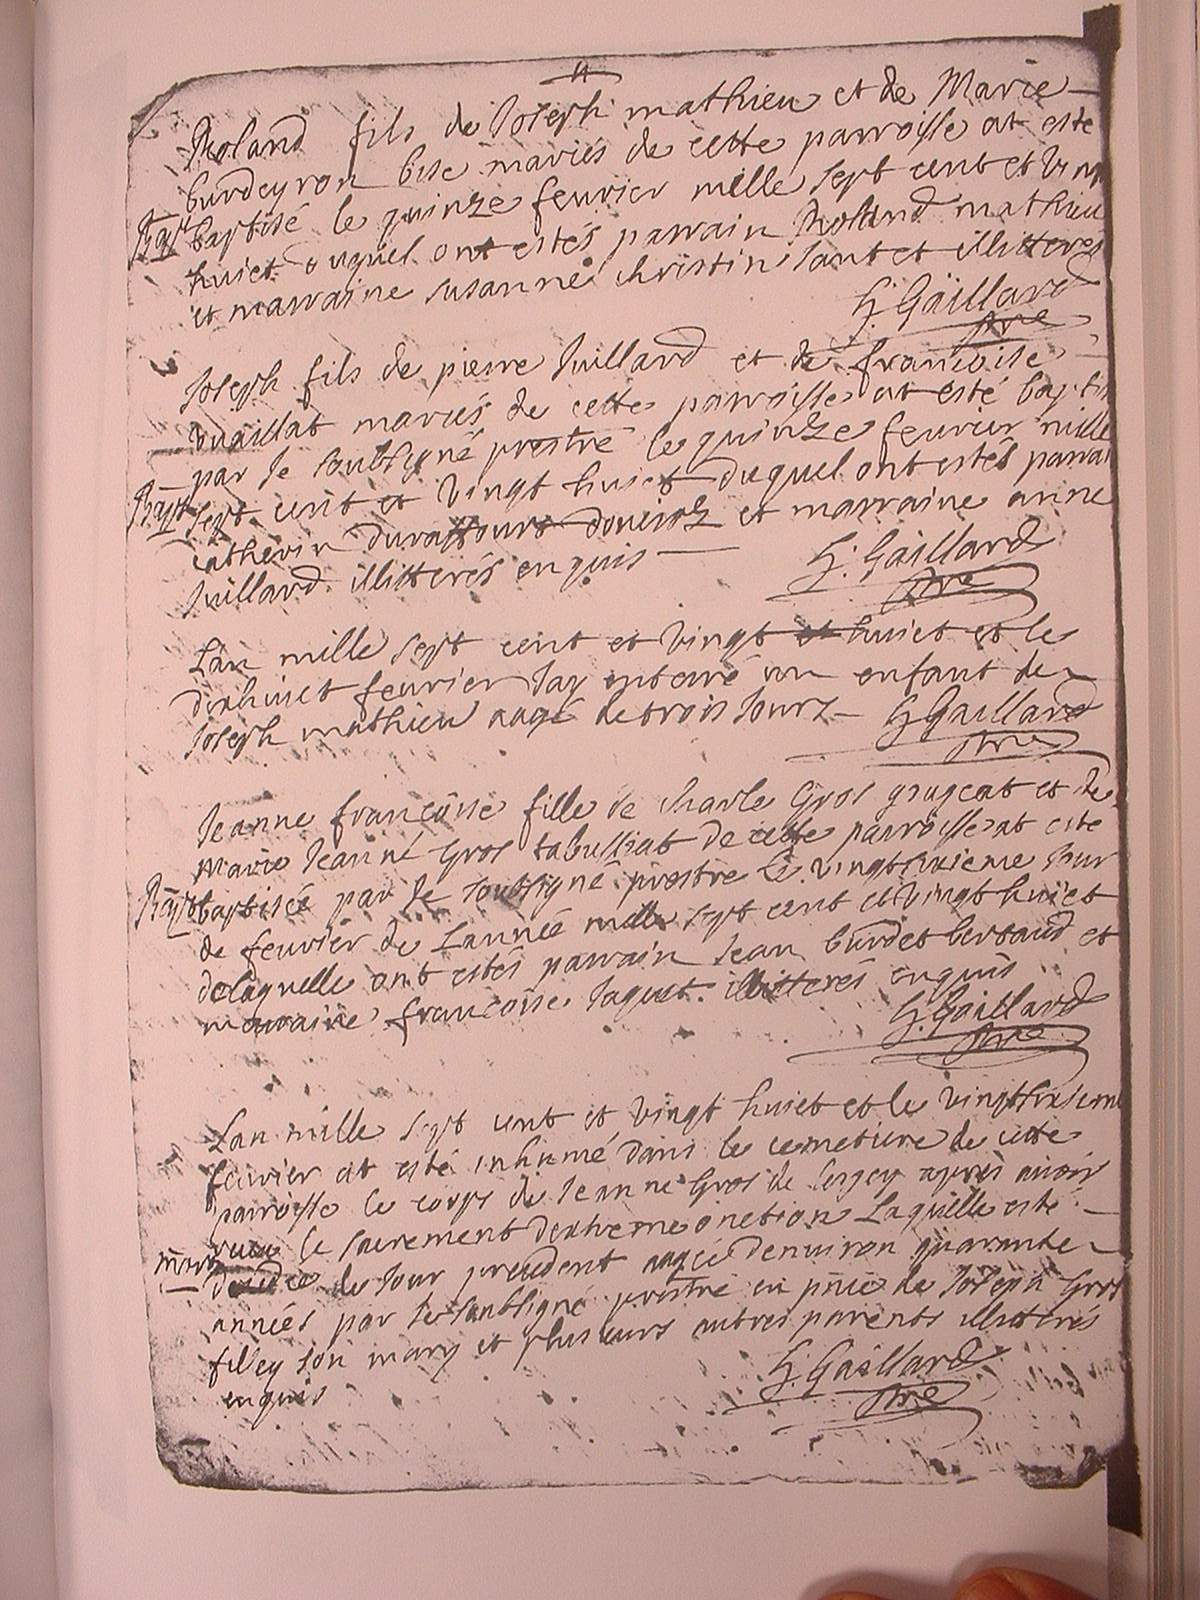 4
Roland fils de Joseph mathieu et de Marie
burdeyron bise mariés de cette parroisse at esté
Bapt baptisé le quinze feurier mille sept cent et vint
huict duquel ont estés parrain Roland mathieu
et marraine susanne christin tout et illitteres
G. Gaillard
ptre
Joseph fils de pierre Juillard et de francoise
vuaillat mariés de cette parroisse at esté baptis
par Je soubsigné prestre le quinze feurier mille
Bapt sept cent et vingt huict duquel ont estés parrai
catherin duraffourt et marraine anne
Juillard illitterés enquis
G. Gaillard
ptre
Lan mille sept cent et vingt et huict et le
dixhuict feurier Jay enterré un enfant de
Joseph mathieu aagé de trois Jours G Gaillard
ptre
Jeanne francoise fille de charle Gros grugeat et de
Marie Jeanne Gros tabussiat de cette parroisse at esté
Bapt baptisée par Je soubsigné prestre le vingtsixieme Jour
de feurier de Lannée mille sept cent et vingt huict
delaquelle ont estés parrain Jean burdet bertaud et
marraine francoise Jaquet illitterés enquis
G. Gaillard
ptre
Lan mille sept cent et vingt huict et le vingtsixieme
feurier at esté inhumé dans le cemetiere de cette
parroisse le corps de Jeanne Gros de apres auoir
receu le sacrement dextreme onction Laquelle esté
mort decedée le Jour precedent aagée denuiron quarante
années par Je soubsigné prestre en pnce de Joseph Gros
filley son mary et plusieurs autres parents illitterés
enquis
G. Gaillard
ptre